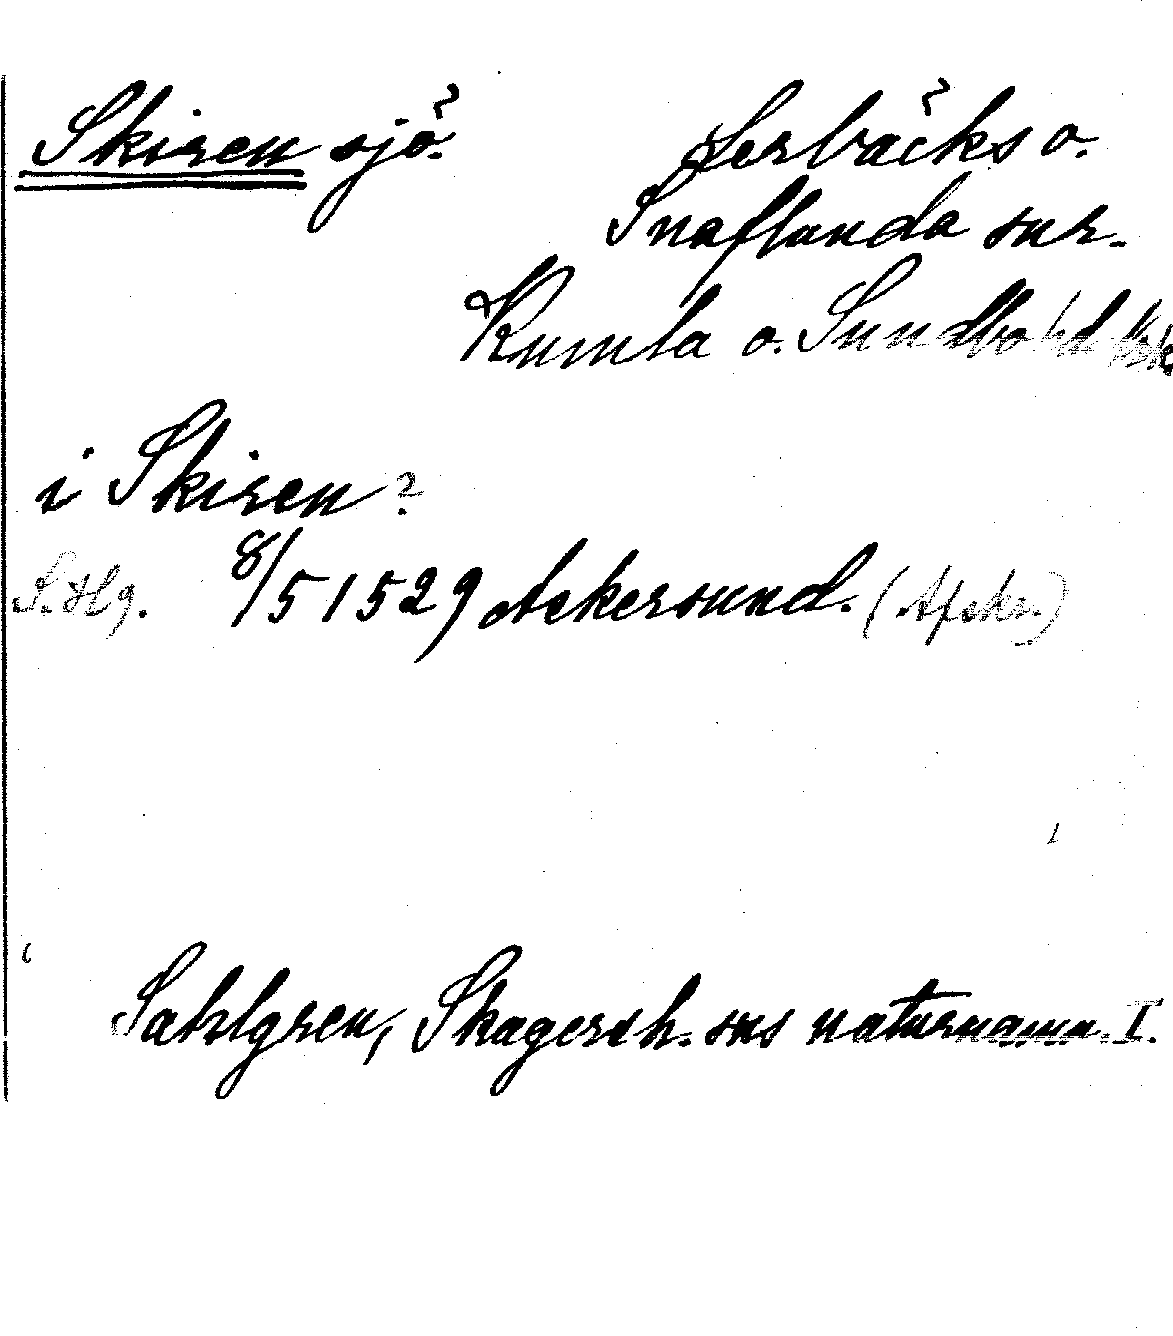 Skiren sjö. Lerbäcks o.
Snaflunda snr.
Kumla o. Sundbo hd
i Skiren?
8/5 1529 Askersund. (Afskr.)
Sahlgren, Skagersh. sns naturnamn. I.